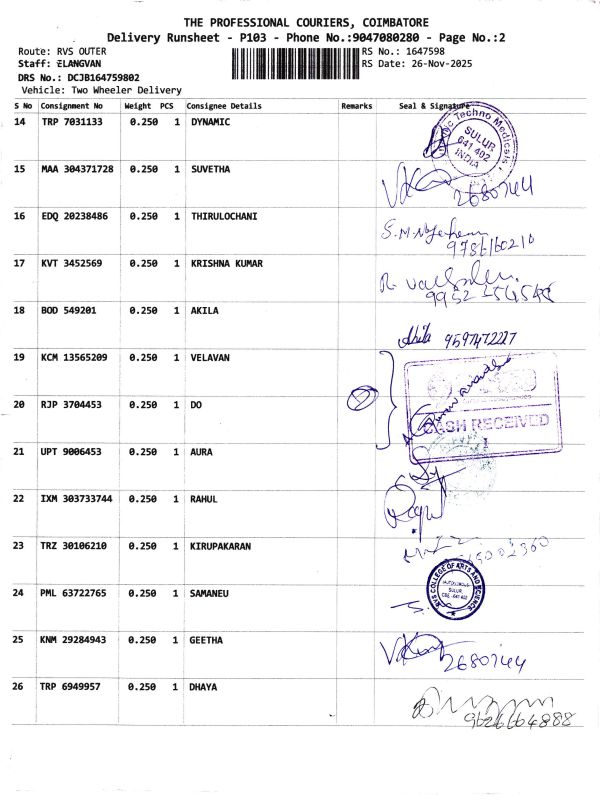 THE PROFESSIONAL COURIERS, COIMBATORE
Delivery Runsheet - P103 - Phone No.:9047080280 - Page No.:2
Route: RVS OUTER RS No.: 1647598
Staff: ELANGVAN RS Date: 26-Nov-2025
DRS No.: DCJB164759802
Vehicle: Two Wheeler Delivery
S No Consignment No Weight PCS Consignee Details Remarks Seal & Signature
14 TRP 7031133 0.250 1 DYNAMIC
Techno Medicals
SULUR
641 402
INDIA
15 MAA 304371728 0.250 1 SUVETHA
2680744
16 EDQ 20238486 0.250 1 THIRULOCHANI
S.M.
9786160210
17 KVT 3452569 0.250 1 KRISHNA KUMAR
R
9952
18 BOD 549201 0.250 1 AKILA
Akila 9597472227
19 KCM 13565209 0.250 1 VELAVAN
20 RJP 3704453 0.250 1 DO 2
CASH RECEIVED
21 UPT 9006453 0.250 1 AURA
22 IXM 303733744 0.250 1 RAHUL
23 TRZ 30106210 0.250 1 KIRUPAKARAN
24 PML 63722765 0.250 1 SAMANEU
RVS COLLEGE OF ARTS AND SCIENCE
(AUTONOMOUS)
SULUR,
CBE - 641 402
25 KNM 29284943 0.250 1 GEETHA
2680744
26 TRP 6949957 0.250 1 DHAYA
9626664888